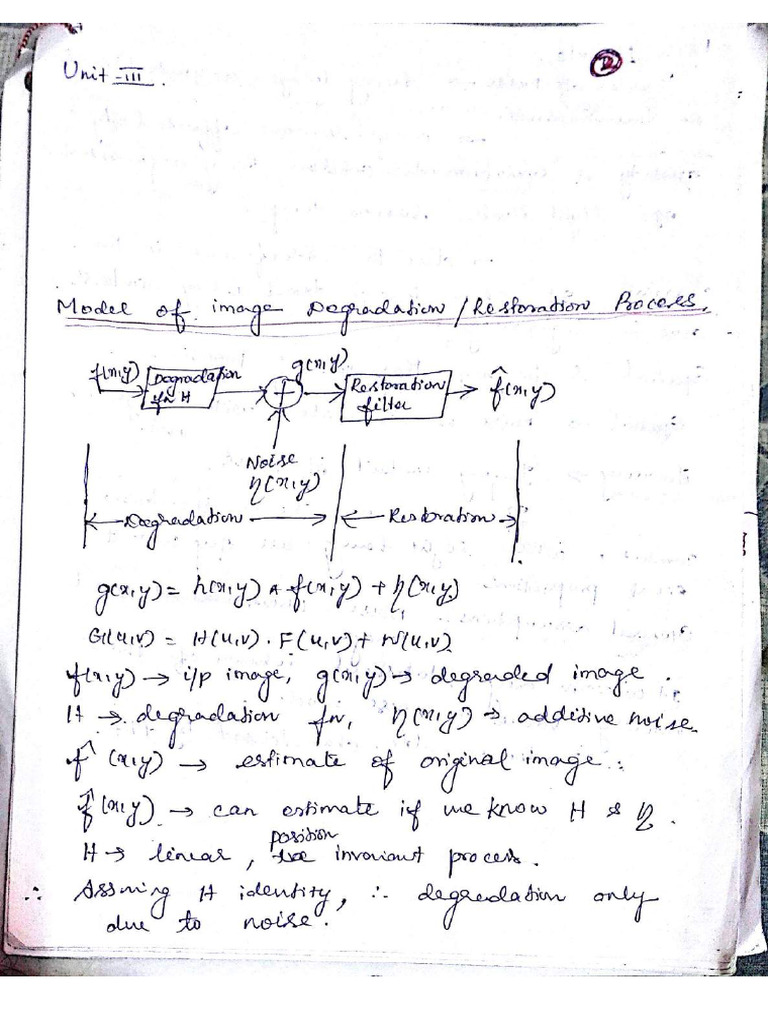 Unit-III.
12
Model of image Degradation/Restoration Process.
f(x,y)
Degradation
fn H
g(x,y)
+
Restoration
filter
f̂(x,y)
Noise
η(x,y)
Degradation
Restoration
g(x,y) = h(x,y) * f(x,y) + η(x,y)
G(u,v) = H(u,v) . F(u,v) + N(u,v)
f(x,y) → i/p image, g(x,y) → degraded image.
H → degradation fn, η(x,y) → additive noise.
f̂(x,y) → estimate of original image.
f̂(x,y) → can estimate if we know H & η.
position
H → linear, invariant process.
∴ Assming H identity, ∴ degradation only
due to noise.